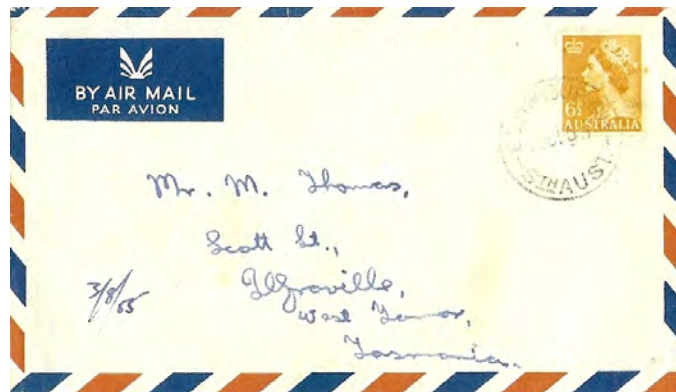 BY AIR MAIL
PAR AVION
6½
AUSTRALIA
STH AUST
Mr. M. Thomas,
Scott St.,
Ilfraville,
West Tamar,
Tasmania.
3/8/55